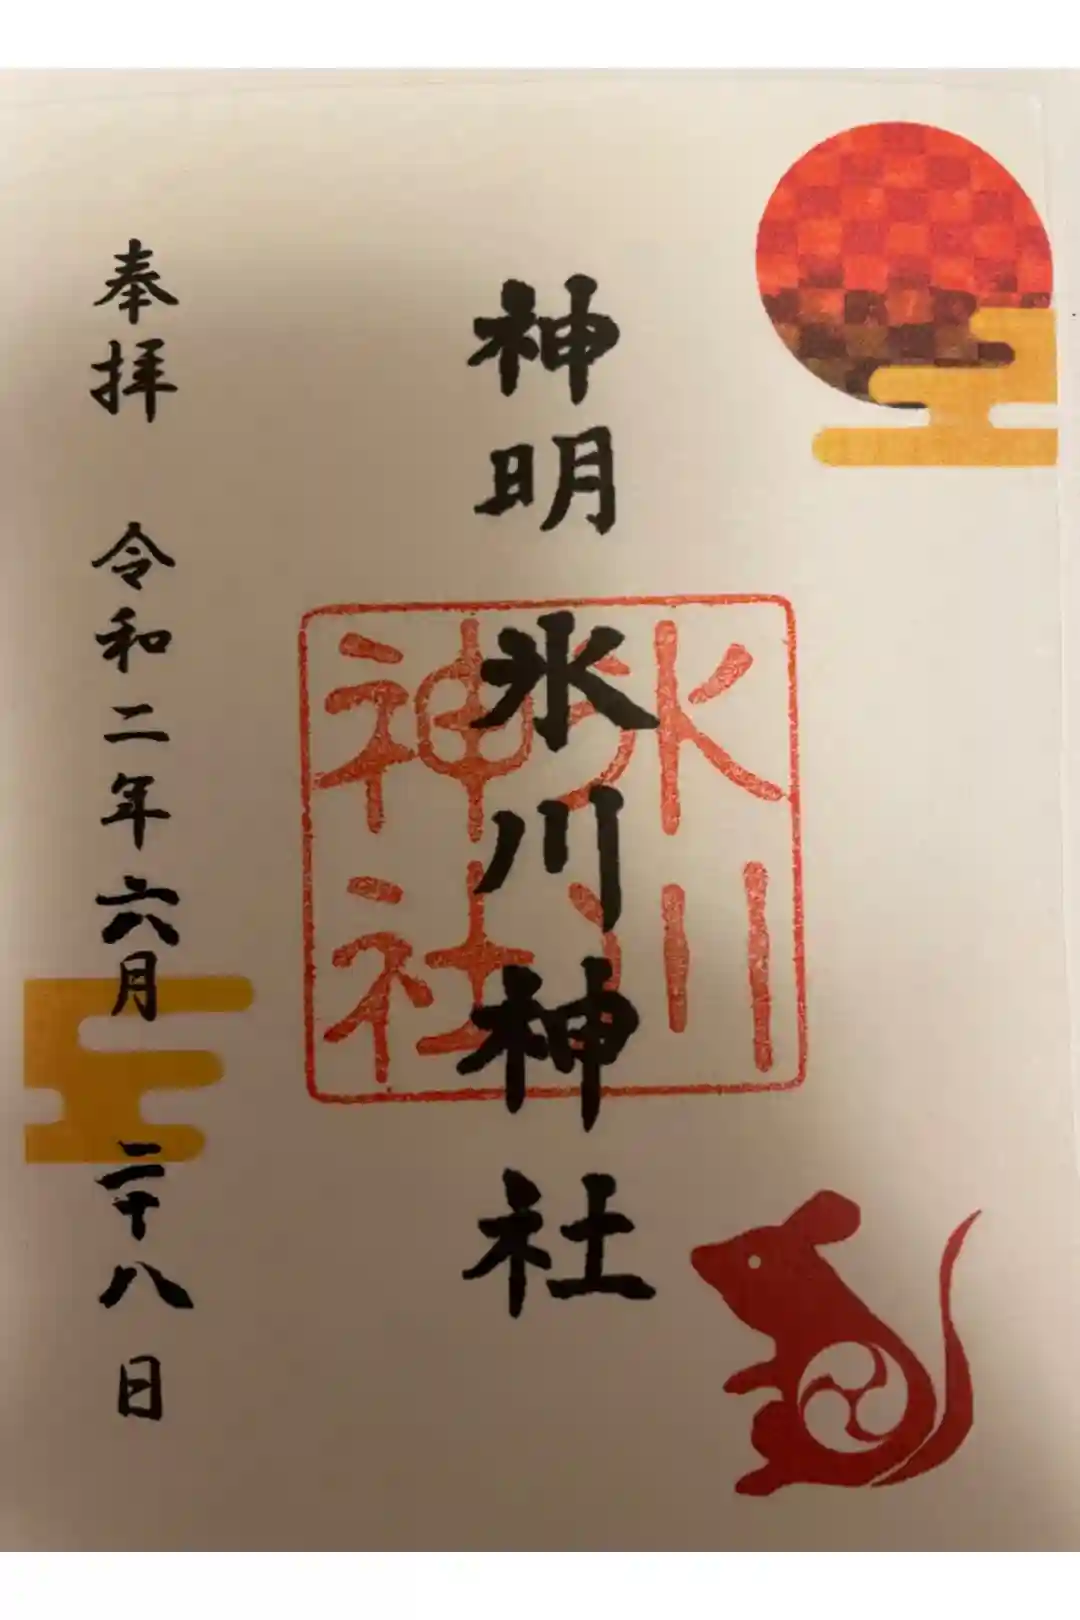 神明氷川神社
氷川
神社
奉拝 令和二年六月二十八日